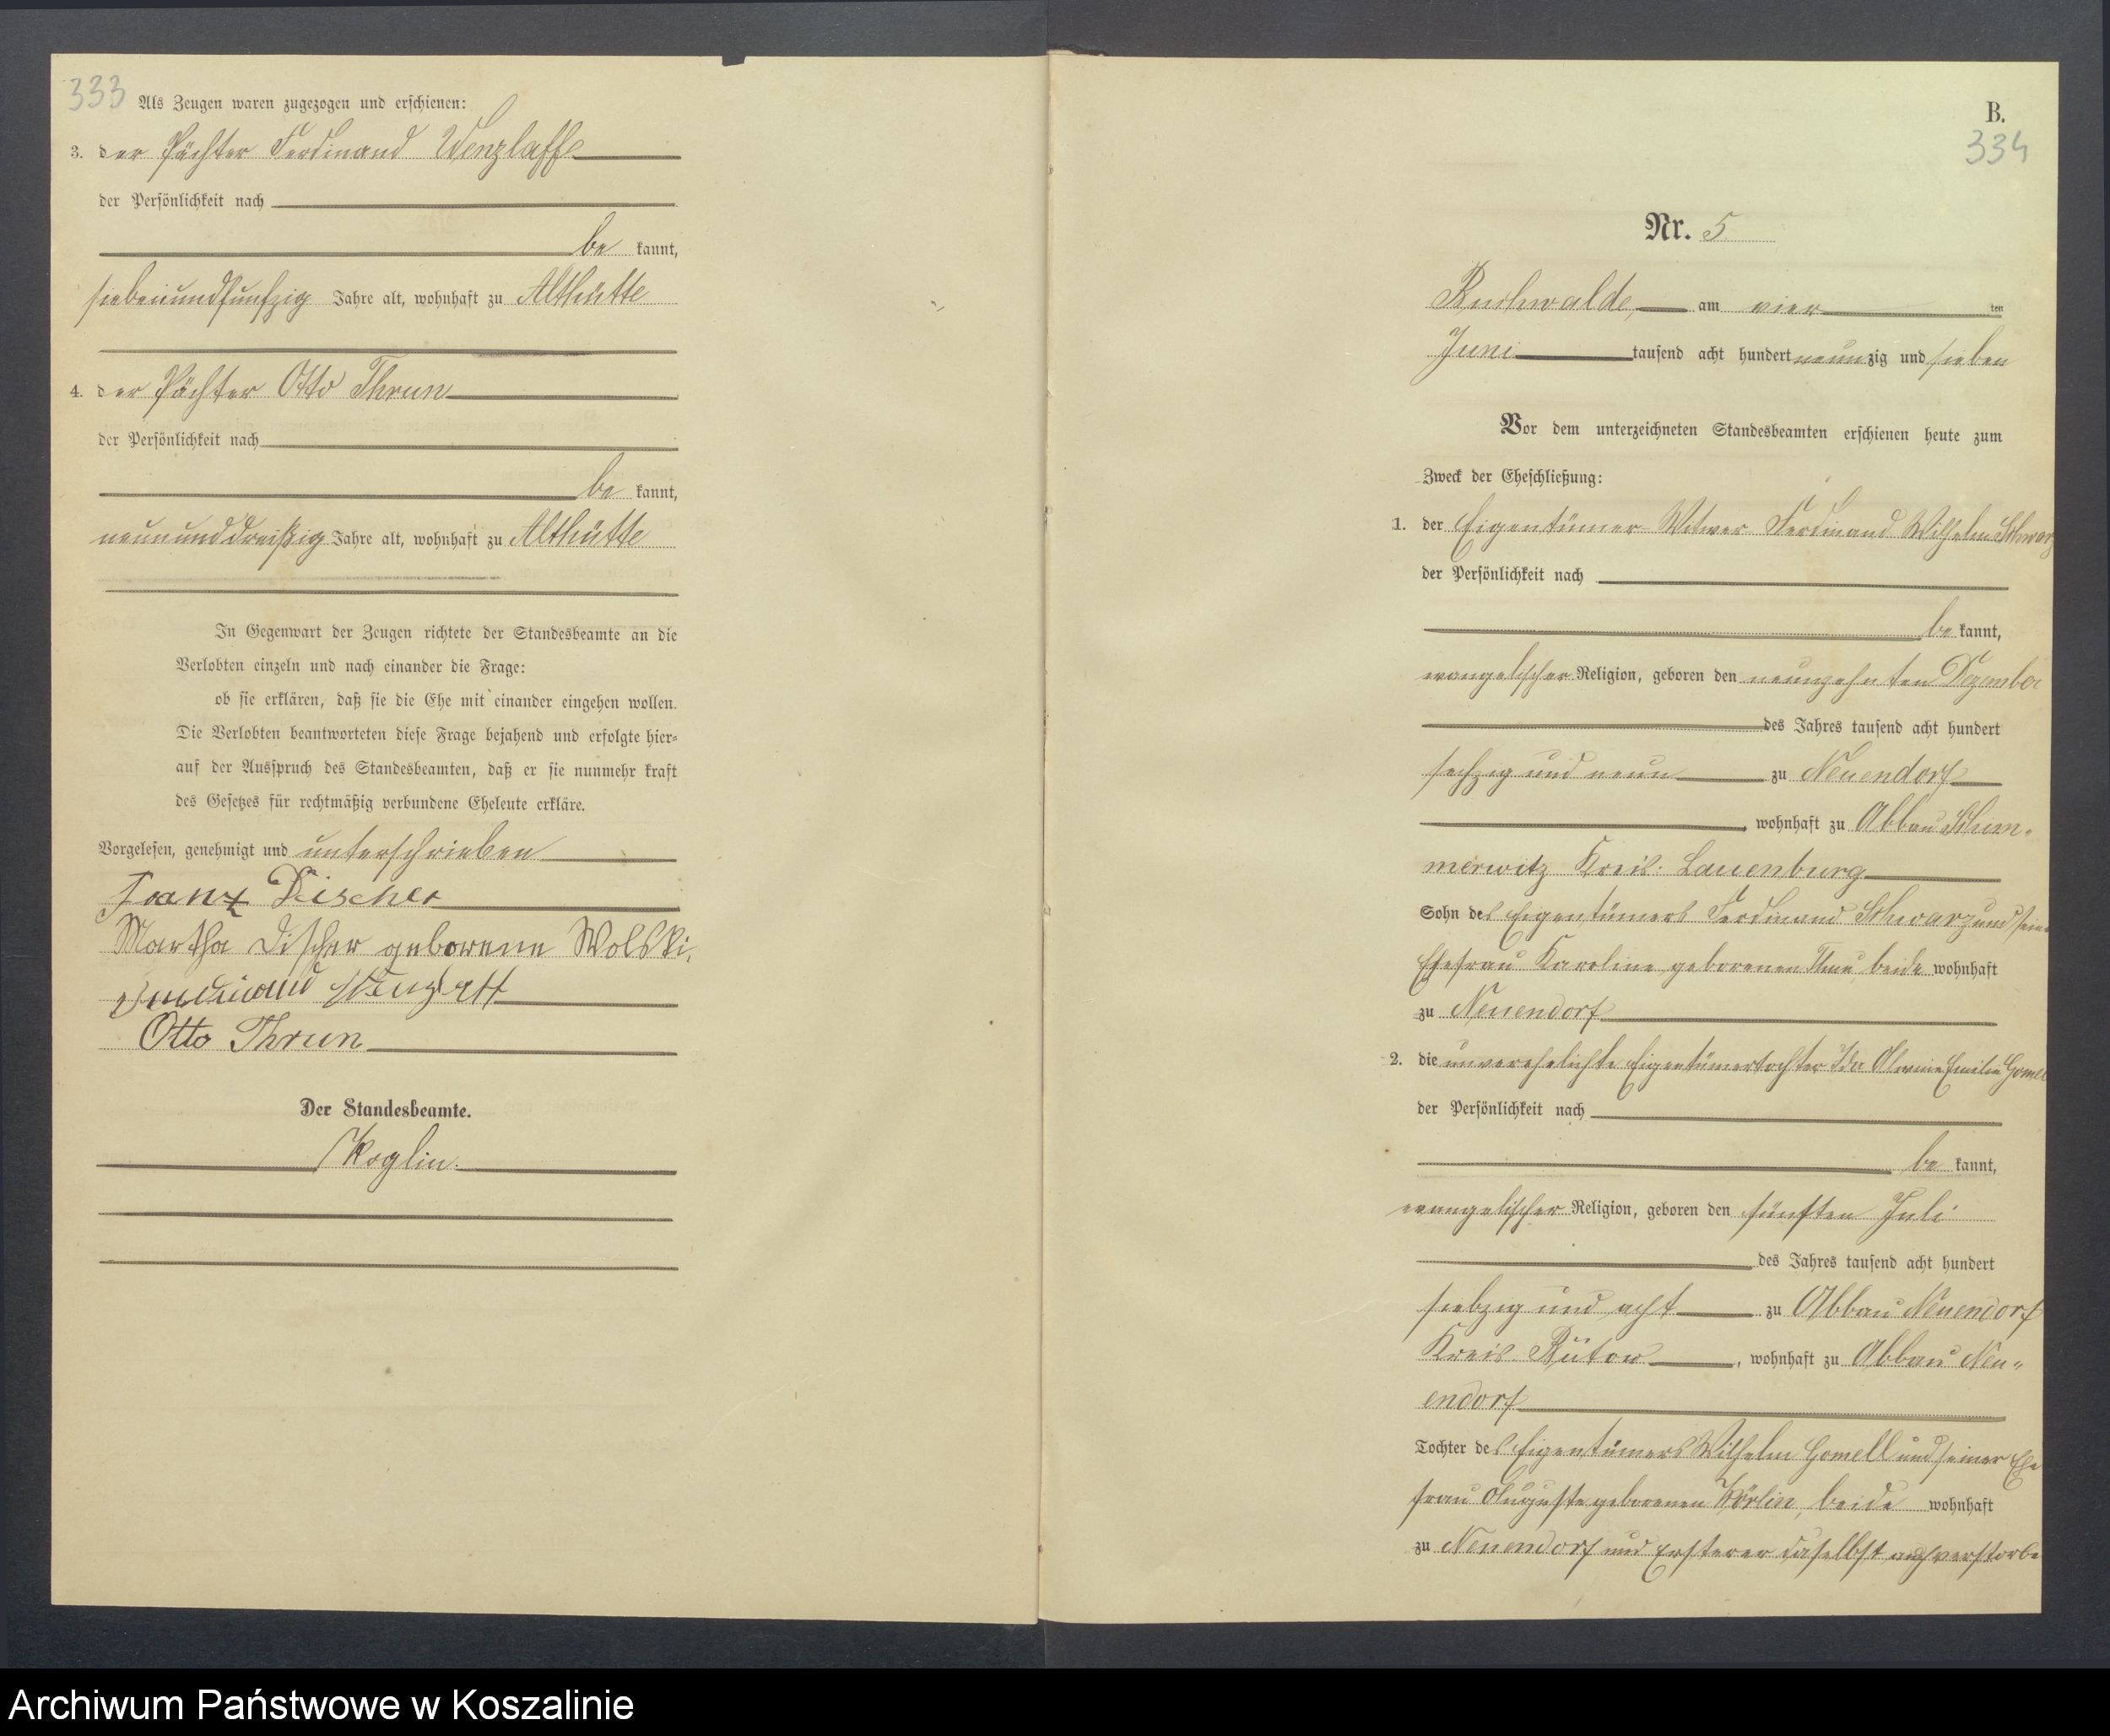 333
Als Zeugen waren zugezogen und erschienen:
3. der Pächter Ferdinand Wenzlaff
der Persönlichkeit nach
be kannt,
siebenundfunfzig Jahre alt, wohnhaft zu Althütte
4. der Pächter Otto Thrun
der Persönlichkeit nach
be kannt,
neununddreißig Jahre alt, wohnhaft zu Althütte
In Gegenwart der Zeugen richtete der Standesbeamte an die
Verlobten einzeln und nach einander die Frage:
ob sie erklären, daß sie die Ehe mit einander eingehen wollen.
Die Verlobten beantworteten diese Frage bejahend und erfolgte hier-
auf der Ausspruch des Standesbeamten, daß er sie nunmehr kraft
des Gesetzes für rechtmäßig verbundene Eheleute erkläre.
Vorgelesen, genehmigt und unterschrieben
Franz Discher
Martha Discher geborene Wolski.
Ferdinand Wenzlaff
Otto Thrun
Der Standesbeamte.
Koglin.
B.
334
Nr. 5
am vier ten
Juni tausend acht hundert neunzig und sieben
Vor dem unterzeichneten Standesbeamten erschienen heute zum
Zweck der Eheschließung:
1. der Eigentümer Witwer Ferdinand Wilhelm Schwarz
der Persönlichkeit nach
be kannt,
evangelischer Religion, geboren den neunzehnten Dezember
des Jahres tausend acht hundert
sechzig und neun zu Neuendorf
, wohnhaft zu Abbau Schim-
merwitz Kreis Lauenburg
Sohn des Eigentümers Ferdinand Schwarz und seiner
Ehefrau Karoline geborenen beide wohnhaft
zu Neuendorf
2. die unverehelichte Eigentümertochter Ida Emilie Gomell
der Persönlichkeit nach
be kannt,
evangelischer Religion, geboren den fünften Juli
des Jahres tausend acht hundert
siebzig und acht zu Abbau Neuendorf
Kreis Bütow, wohnhaft zu Abbau Neu-
endorf
Tochter des Eigentümers Wilhelm Gomell und seiner Ehe
frau Auguste geborenen Körlin, beide wohnhaft
zu Neuendorf und Ersterer daselbst auch verstorbe
Archiwum Państwowe w Koszalinie